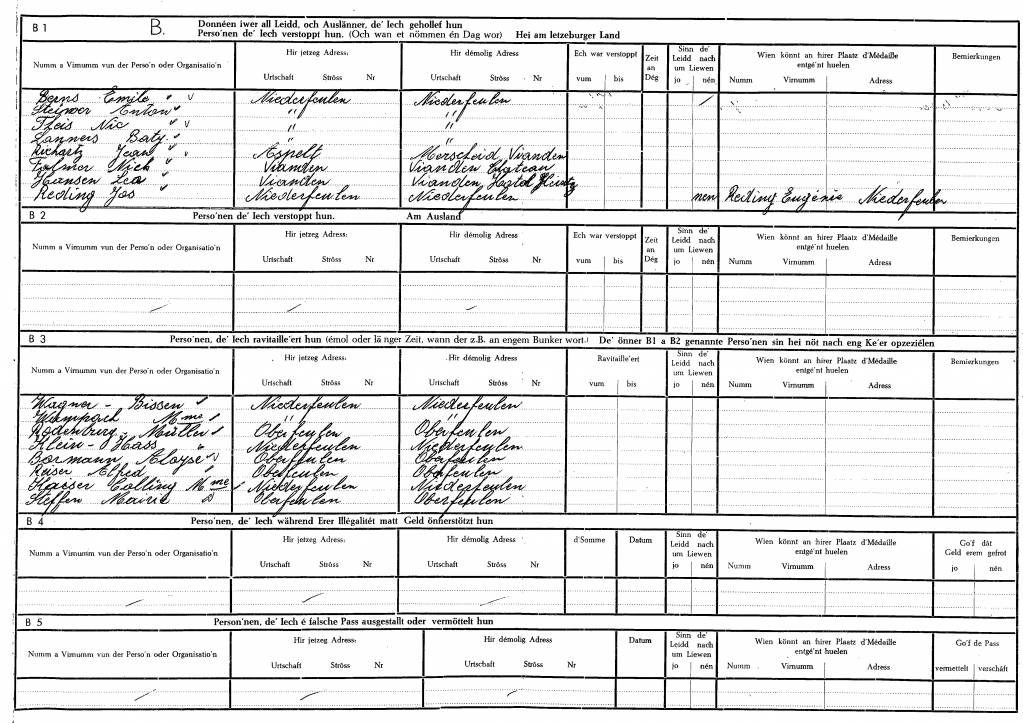 B 1 B. Donnéen iwer all Leidd, och Auslänner, de' Iech gehollef hun
Perso'nen de' Iech verstoppt hun. (Och wan et nömmen én Dag wor) Hei am letzeburger Land
Numm a Vimumm vun der Perso'n oder Organisatio'n Hir jetzeg Adress: Hir démolig Adress Ech war verstoppt Zeit an Dég Sinn de' Leidd nach um Liewen Wien könnt an hirer Plaatz d'Médaille entgé'nt huelen Bemierkungen
Urtschaft Ströss Nr Urtschaft Ströss Nr vum bis jo nén Numm Virnumm Adress
Berns Emile " v Niederfeulen Niederfeulen /
Steiwer Anton " " "
Theis Nic " v " "
Lanners Baty " "
Richartz Jean " Aspelt Merscheid Vianden
Nick " Vianden Vianden Chateau
Hansen Lea " Vianden Vianden, Hotel Heintz
Reding Jos Niederfeulen Niederfeulen nen Reding Eugénie Niederfeulen
B 2 Perso'nen de' Iech verstoppt hun. Am Ausland
Numm a Vimumm vun der Perso'n oder Organisatio'n Hir jetzeg Adress: Hir démolig Adress Ech war verstoppt Zeit an Dég Sinn de' Leidd nach um Liewen Wien könnt an hirer Plaatz d'Médaille entgé'nt huelen Bemierkungen
Urtschaft Ströss Nr Urtschaft Ströss Nr vum bis jo nén Numm Virnumm Adress
/ / /
B 3 Perso'nen, de' Iech ravitaille'ert hun (émol oder lä nger Zeit, wann der z.B. an engem Bunker wort) De' önner B1 a B2 genannte Perso'nen sin hei nöt nach eng Ke'er opzeziélen
Numm a Vimumm vun der Perso'n oder Organisatio'n Hir jetzeg Adress: Hir démolig Adress Ravitaille'ert Sinn de' Leidd nach um Liewen Wien könnt an hirer Plaatz d'Médaille entgé'nt huelen Bemierkungen
Urtschaft Ströss Nr Urtschaft Ströss Nr vum bis jo nén Numm Virnumm Adress
Wagner - Bissen " Niederfeulen Niederfeulen
Wampach Mme " "
Rodenburg - Müller Oberfeulen Oberfeulen
Klein - Hass " Niederfeulen Niederfeulen
Bormann Aloyse v Oberfeulen Oberfeulen
Reiser Alfred " Oberfeulen Oberfeulen
Kaeser Colling Mme Niederfeulen Niederfeulen
Steffen Mairie Oberfeulen Oberfeulen
B 4 Perso'nen, de' Iech während Erer Illégalitét matt Geld önnerstötzt hun
Numm a Vimumm vun der Perso'n oder Organisatio'n Hir jetzeg Adress: Hir démolig Adress d'Somme Datum Sinn de' Leidd nach um Liewen Wien könnt an hirer Plaatz d'Médaille entgé'nt huelen Go'f dät Geld erem gefrot
Urtschaft Ströss Nr Urtschaft Ströss Nr jo nén Numm Virnumm Adress jo nén
/ / /
B 5 Person'nen, de' Iech é falsche Pass ausgestallt oder vermöttelt hun
Numm a Vimumm vun der Perso'n oder Organisatio'n Hir jetzeg Adress: Hir démolig Adress Datum Sinn de' Leidd nach um Liewen Wien könnt an hirer Plaatz d'Médaille entgé'nt huelen Go'f de Pass
Urtschaft Ströss Nr Urtschaft Ströss Nr jo nén Numm Virnumm Adress vermettelt verschäft
/ / /